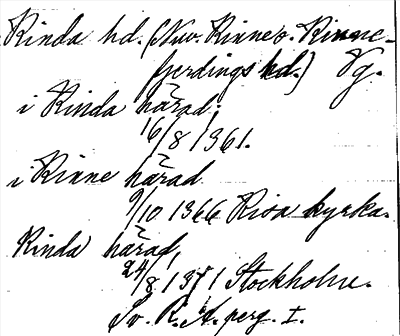 Kinda hd. (Nuv. Kinne o. Kinne-
fjerdings hd.) Vg.
i Kinda härad.
16/8 1361.
i Kinne härad
9/10 1366 Risa kyrka.
Kinda härad,
24/8 1371 Stockholm.
Sv. R. A. perg. I.